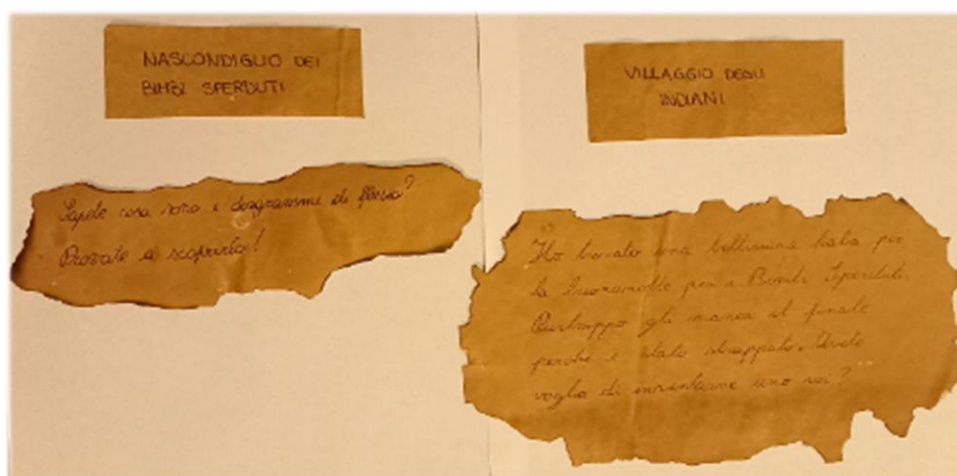 NASCONDIGLIO DEI
BIMBI SPERDUTI
Sapete cosa sono i diagrammi di flusso?
Provate a scoprirlo!
VILLAGGIO DEGLI
INDIANI
Ho trovato una bellissima fiaba per
la buonanotte per i Bimbi Sperduti.
Purtroppo gli manca il finale
perché è stato strappato. Avete
voglia di inventarne uno voi?